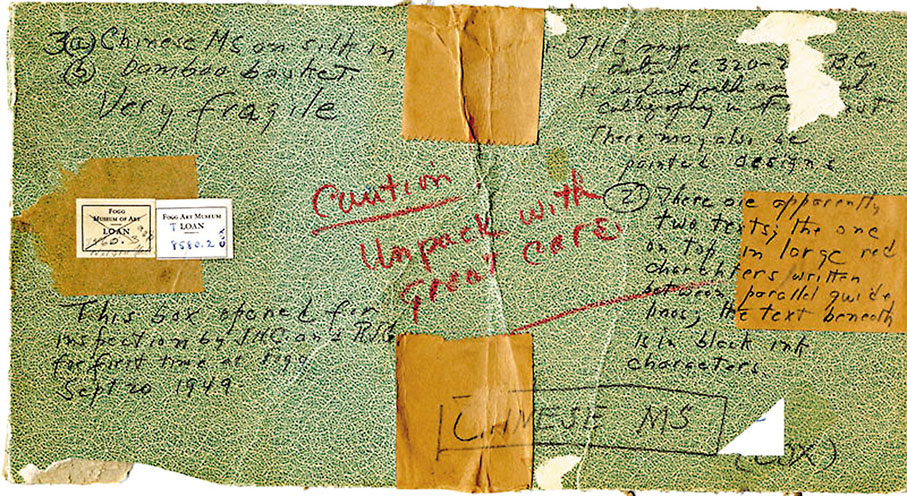 3(a) Chinese MS on silk in
(b) bamboo basket
Very fragile
FOGG
MUSEUM OF ART
LOAN
FOGG ART MUSEUM
T LOAN
8580.2
COX
This box opened for
inspection by JHC and
for first time at Fogg
Sept 20 1949
Caution
Unpack with
great care
JHC
320-
BC,
calligraphy
There may also be
painted designs
(2) There are apparently
two texts; the one
on top, in large red
characters written
between parallel guide
lines; the text beneath
is in black ink
characters.
CHINESE MS
(COX)